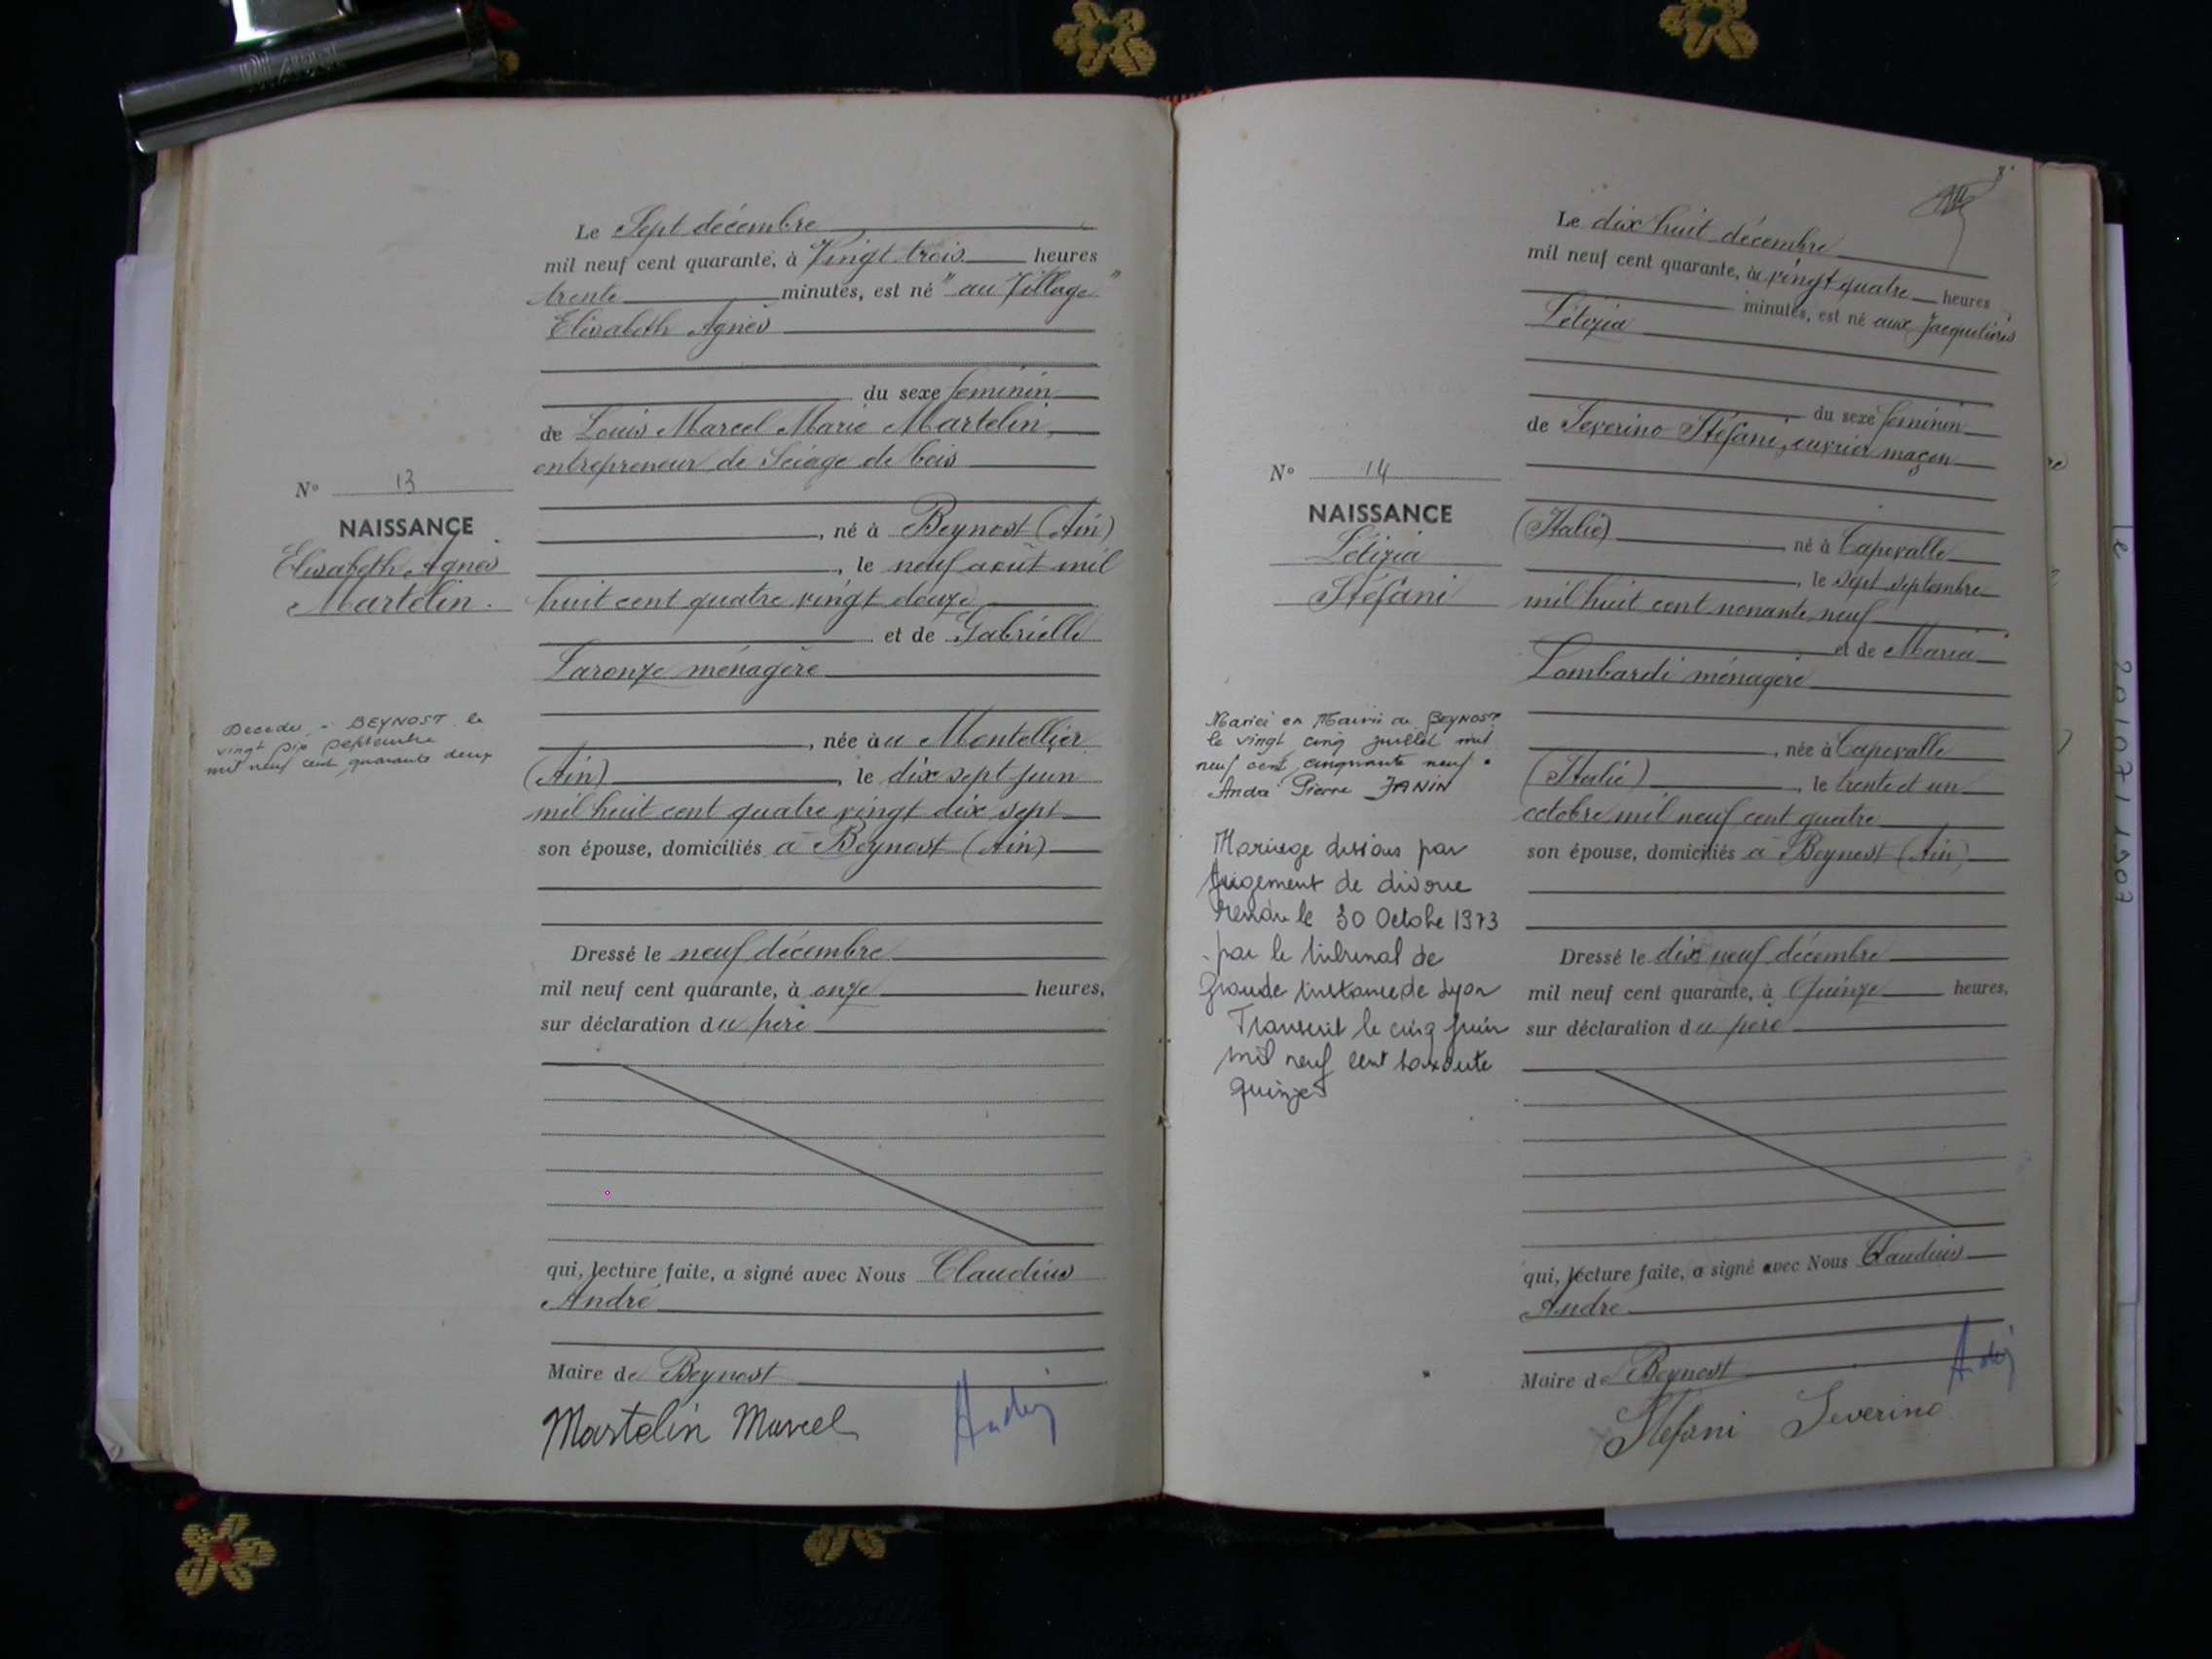 Le Sept décembre
mil neuf cent quarante, à Vingt trois heures
trente minutes, est né "au Village"
Elisabeth Agnès
du sexe féminin
de Louis Marcel Marie Martelin,
entrepreneur de Sciage de bois
N° 13
NAISSANCE
Elisabeth Agnès
Martelin.
né à Beynost (Ain)
, le neuf août mil
huit cent quatre vingt douze
et de Gabrielle
Laronze ménagère
Décédée à BEYNOST le
vingt six septembre
mil neuf cent quarante deux
, née àu Montellier
(Ain), le dix sept juin
mil huit cent quatre vingt dix sept
son épouse, domiciliés à Beynost (Ain)
Dressé le neuf décembre
mil neuf cent quarante, à onze heures,
sur déclaration du père
qui, lecture faite, a signé avec Nous Claudius
André
Maire de Beynost
Martelin Marcel
Le dix huit décembre
mil neuf cent quarante, à vingt quatre heures
minutes, est né aux Jacquelines
Létizia
du sexe féminin
de Severino Stéfani, ouvrier maçon
N° 14
NAISSANCE
Létizia
Stéfani
(Italie) né à Capovalle
, le sept septembre
mil huit cent nonante neuf
et de Maria
Lombardi ménagère
, née à Capovalle
(Italie), le trente et un
octobre mil neuf cent quatre
son épouse, domiciliés à Beynost (Ain)
Mariée en Mairie de BEYNOST
le vingt cinq juillet mil
neuf cent cinquante neuf.
André Pierre JANIN
Mariage dissous par
jugement de divorce
rendu le 30 Octobre 1973
par le tribunal de
Grande Instance de Lyon
Transcrit le cinq juin
mil neuf cent soixante
quinze
Dressé le dix neuf décembre
mil neuf cent quarante, à Quinze heures,
sur déclaration du père
qui, lecture faite, a signé avec Nous Claudius
André
Maire de Beynost
Stefani Severino